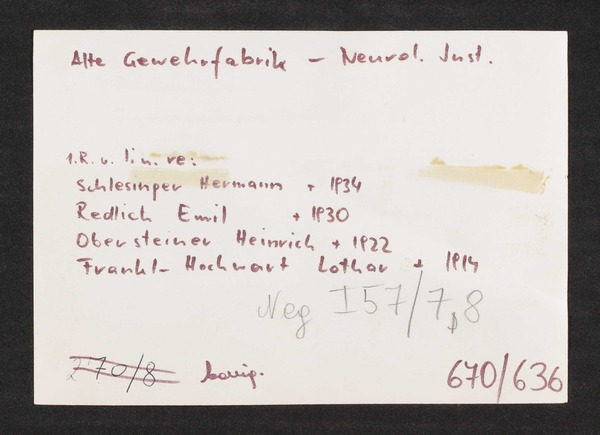 Alte Gewehrfabrik – Neurol. Inst.
1.R. v. li. n. re:
Schlesinger Hermann + 1934
Redlich Emil + 1930
Obersteiner Heinrich + 1922
Frankl-Hochwart Lothar + 1914
Neg I57/7,8
270/8
670/636